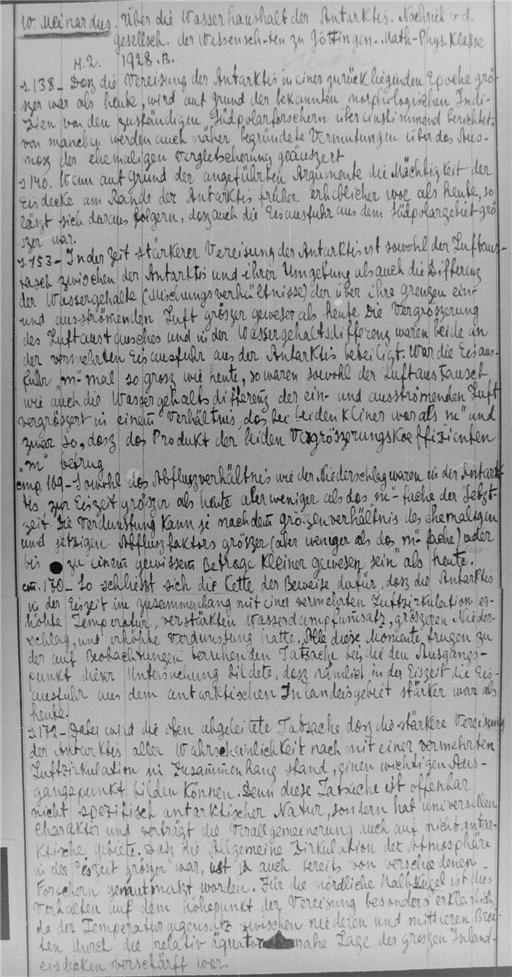 W. Meinardus, Über die Wasserhaushalt der Antarktis. Nachrich. v. d.
Gesellsch. der Wissensch-ten zu Göttingen. Math-Phys. Klasse
H. 2. 1928. B.
s. 138 - Dasz die Vereisung der Antarktis in einer zurückliegenden Epoche grö-
szer war als heute, wird auf grund der bekannten morphologischen Indi-
zien von den zuständigen Südpolarforschern übereinstimmend berichtet.
von manchen werden auch näher begründete Vermutungen über das Aus-
masz der ehemaligen Vergletscherung geäuszert
s. 140. Wenn auf Grund der angeführten Argumente die Mächtigkeit der
Eisdecke am Rande der Antarktis früher erheblicher war als heute, so
läszt sich daraus folgern, dasz auch die Eisausfuhr aus dem Südpolargebiet grö-
szer war.
s. 153 - In der Zeit stärkerer Vereisung der Antarktis ist sowohl der Luftaus-
tasch zwischen der Antarktis und ihrer Umgebung als auch die Differenz
der Wassergehalte (Mischungsverhältnisse) der über ihre grenzen ein-
und ausströmenden Luft gröszer gewesen als heute. Die Vergröszerung
des Luftaustausches und in der Wassergehaltsdifferenz waren beide an
der vermehrten Eisausfuhr aus der Antarktis beteiligt. War die Eisaus-
fuhr "m"-mal so grosz wie heute, so waren sowohl der Luftaustausch
wie auch die Wassergehaltsdifferenz der ein- und ausströmenden Luft
vergröszert in einem Verhältnis, das bei beiden kleiner war als "m" und
zwar so, dasz das Produkt der beiden Vergröszerungskoeffizienten
"m" betrug
169 - Sowohl das Abfluszverhältnis wie der Niederschlag waren in der Antark-
tis zur Eiszeit gröszer als heute aber weniger als das m-fache der Jetzt-
zeit. Die Verdunstung kann je nach dem gröszenverhältnis des ehemaligen
und jetzigen Abfluszfaktors gröszer (aber weniger als das m-fache) oder
bis zu einem gewissem Betrage kleiner gewesen sein als heute.
170 - So schlieszt sich die Kette der Beweise dafür, dasz die Antarktis
in der Eiszeit im zusammenhang mit einer vermehrten Luftzirkulation er-
höhte Temperatur, verstärkten Wasserdampfumsatz, gröszeren Nieder-
schlag, und erhöhte Verdunstung hatte. Alle diese Momente trugen zu
der auf Beobachtungen beruhenden Tatsache bei, die den Ausgangs-
punkt dieser Untersuchung bildete, dasz nämlich in der Eiszeit die Eis-
ausfuhr aus dem antarktischen Inlandeisgebiet stärker war als
heute.
s. 172 - Dabei wird die oben abgeleitete Tatsache dasz die stärkere Vereisung
der Antarktis aller Wahrscheinlichkeit nach mit einer vermehrten
Luftzirkulation in Zusammenhang stand, einen wichtigen Aus-
gangspunkt bilden können. Denn diese Tatsache ist offenbar
nicht spezifisch antarktischer Natur, sondern hat universellen
charakter und verträgt die Verallgemeinerung auch auf nichtantar-
ktische gebiete. Dasz die Allgemeine Zirkulation der Atmosphäre
in der Eiszeit gröszer war, ist ja auch bereits von verschiedenen
Forschern gemutmaszt worden. Für die nördliche Halbkugel ist dies
Verhalten auf dem höhepunkt der Vereisung besonders erklärlich,
da der Temperaturgegensatz zwischen niederen und mittleren Brei-
ten durch die relativ äquatornahe Lage des groszen Inland-
eisdecken verschärft war.